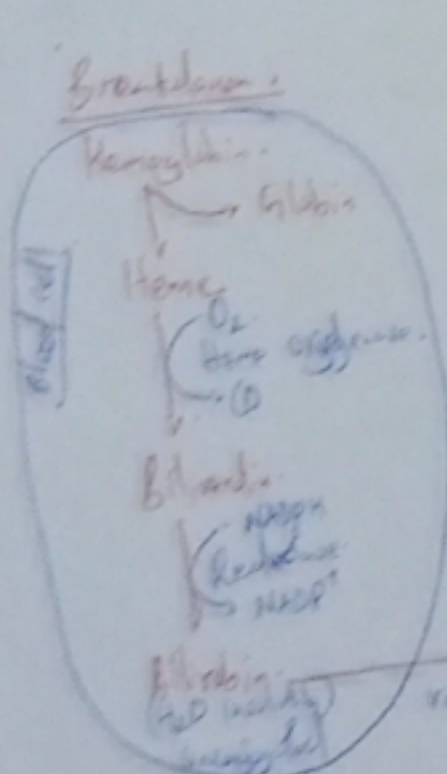 Breakdown.
Hemoglobin.
Globin
Heme
O₂
Heme oxygenase.
Blood cell
Biliverdin
NADPH
Reductase
NADP⁺
Bilirubin
(H₂O insoluble)